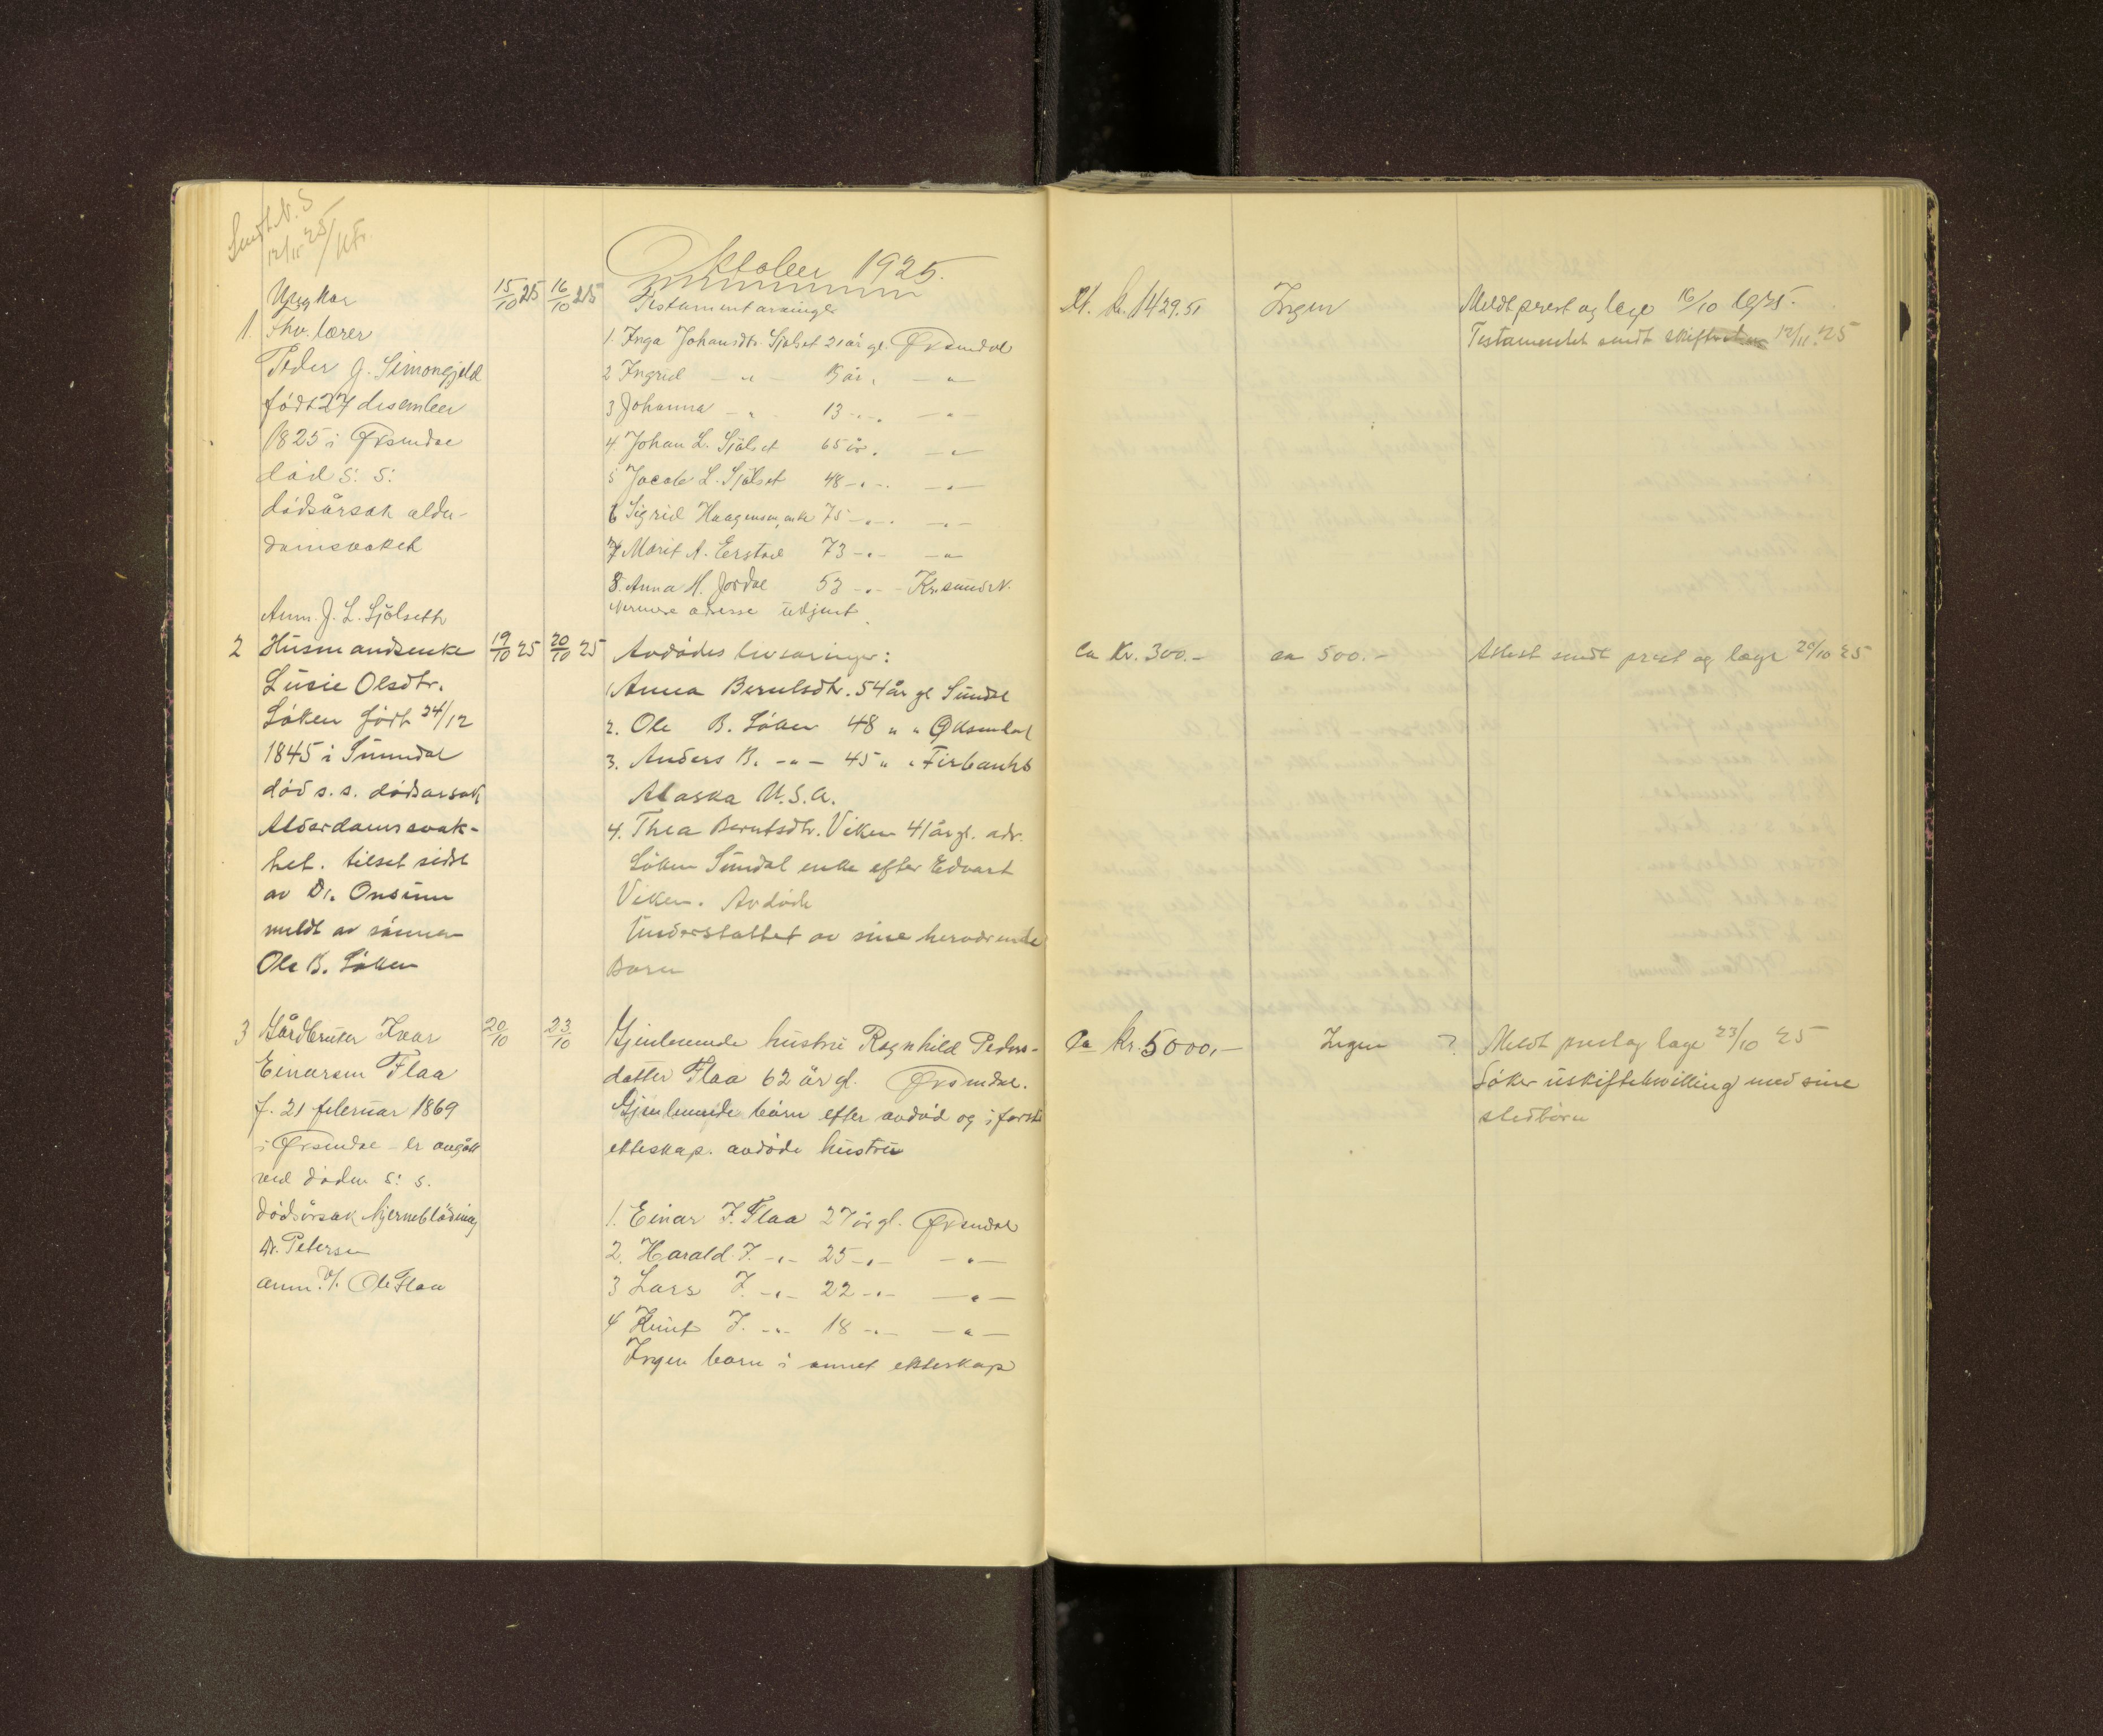 Sendt N. S
12/11 25
Oktober 1925.
Ungkar
1. Fhv. lærer
Peder G. Simongjeld
født 27 desember
1825 i Øksendal
død s: s:
dødsårsak alder-
domssvakhet
Anm. J. L. Sjølseth
15/10 25 16/10 25
Testamentarvinger
1. Inga Johansdtr. Sjølset 21 år gl. Øksendal
2 Ingrid — " — 15 år. — " —
3 Johanna — " — 13 — " — — " —
4 Johan L. Sjølset 65 år. — " —
5 Jacob L. Sjølset 48 — " — — " —
6 Sigrid Haagensen, enke 75 — " — — " —
7 Marit A. Erstad 73 — " — — " —
8. Anna H. Jordal 53 — " — Kr.sund N.
Nermere adresse ukjent.
kr. 1429.51
Ingen
Meldt prest og læge 16/10 1925.
Testamentet sendt 12/11. 25
2 Husmandsenke
Lusie Olsdtr.
Løken født 24/12
1845 i Sunndal
død s. s. dødsarsak
Alderdomssvak-
het. tilset sidst
av Dr. Onsum
meldt av sønnen
Ole B. Løken
19/10 25 20/10 25
Avdødes livsarvinger:
1. Anna Berntsdtr. 54 år gl Sundal
2. Ole B. Løken 48 " " Øksendal
3. Anders B. — " — 45 " " Firbanks
Alaska U.S.A.
4. Thea Berntsdtr. Viken 41 år gl. adr.
Løken Sundal enke efter Edvart
Viken. Avdøde
Understøttet av sine herværende
Børn
Ca Kr. 300.—
ca 500.—
Attest sendt prest og læge 20/10 25
3 Gårdbruker Ivar
Einarsen Flaa
f. 21 februar 1869
i Øksendal — er avgått
ved døden s: s.
Dødsårsak hjerneblødning
Dr. Petersen
anm. v/. Ole Flaa
20/10 23/10
Gjenlevende hustru Ragnhild Peders-
datter Flaa 62 år gl. Øksendal.
Gjenlevende børn efter avdød og i første
ekteskap. avdøde hustru
1. Einar I. Flaa 27 år gl. Øksendal
2. Harald I. — " — 25 — " — — " —
3 Lars I. — " — 22 — " — — " —
4 Knut I. — " — 18 — " — — " —
Ingen barn i annet ekteskap
Ca kr. 5000,—
Ingen ?
Meldt prest og læge 23/10 25
Søker uskiftebevilling med sine
stedbørn